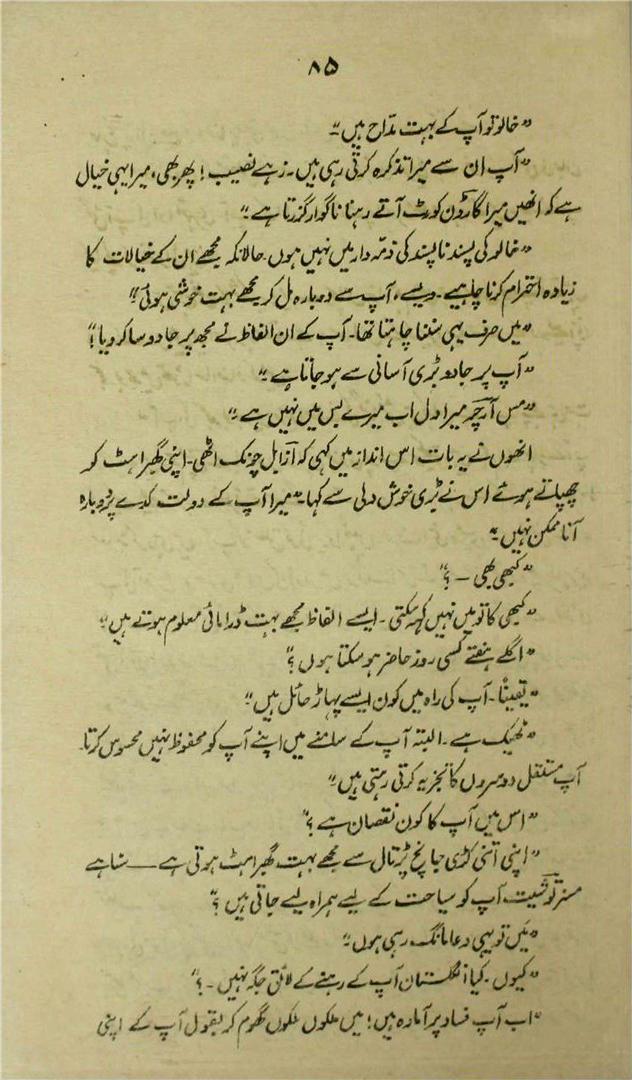 ۸۵
"خالو تو آپ کے بہت مدّاح ہیں"۔
"آپ ان سے میرا تذکرہ کرتی رہی ہیں۔ زہے نصیب! پھر بھی، میرا یہی خیال
ہے کہ انھیں میرا گارڈن کورٹ آتے رہنا ناگوار گزرتا ہے۔"
"خالو کی پسند ناپسند کی ذمّہ دار میں نہیں ہوں۔ حالانکہ مجھے ان کے خیالات کا
زیادہ احترام کرنا چاہیے۔ ویسے، آپ سے دوبارہ مل کر مجھے بہت خوشی ہوئی"۔
"میں صرف یہی سننا چاہتا تھا۔ آپ کے ان الفاظ نے مجھ پر جادو سا کر دیا!"
"آپ پر جادو بڑی آسانی سے ہو جاتا ہے۔"
"مس آرچر میرا دل اب میرے بس میں نہیں ہے۔"
انھوں نے یہ بات اس انداز میں کہی کہ ازابل چونک اٹھی۔ اپنی گھبراہٹ کو
چھپاتے ہوئے اس نے بڑی خوش دلی سے کہا۔ "میرا آپ کے دولت کدے پر دوبارہ
آنا ممکن نہیں۔"
"کبھی بھی — ؟"
"کبھی کا تو میں نہیں کہہ سکتی۔ ایسے الفاظ مجھے بہت ڈرامائی معلوم ہوتے ہیں"۔
"اگلے ہفتے کسی روز حاضر ہو سکتا ہوں؟"
"یقیناً۔ آپ کی راہ میں کون ایسے پہاڑ حائل ہیں"۔
"ٹھیک ہے۔ البتہ آپ کے سامنے میں اپنے آپ کو محفوظ نہیں محسوس کرتا۔
آپ مستقل دوسروں کا تجزیہ کرتی رہتی ہیں"۔
"اس میں آپ کا کون نقصان ہے؟"
"اپنی اتنی کڑی جانچ پڑتال سے مجھے بہت گھبراہٹ ہوتی ہے — سنا ہے
مسز توشیت، آپ کو سیاحت کے لیے ہمراہ لیے جاتی ہیں؟"
"میں تو یہی دعا مانگ رہی ہوں"۔
"کیوں۔ کیا انگلستان آپ کے رہنے کے لائق جگہ نہیں۔؟"
"اب آپ فساد پر آمادہ ہیں! میں ملکوں ملکوں گھوم کر بقول آپ کے اپنی